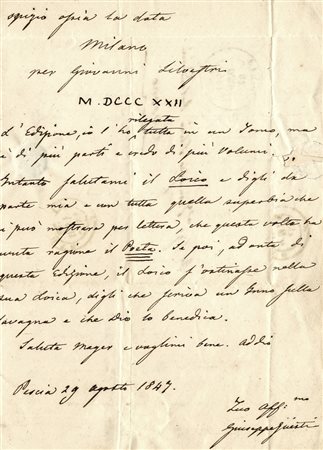 ospizio ossia la data
Milano
per Giovanni Silvestri
M. DCCC XXII
rilegata
L'Edizione, io l'ho tutta in un Tomo, ma
è di più parti e credo di più volumi.
Intanto salutami il Lorco e digli da
parte mia e con tutta quella superbia che
si può mostrare per lettera, che questa volta ha
avuta ragione il Poeta. Se poi, ad onta di
questa Edizione, il Lorco s'ostinasse nella
sua, digli che scriva un Inno sulla
lavagna e che Dio lo benedica.
Saluta Mayer e vogliimi bene. Addio
Pescia 29 agosto 1847.
Tuo Aff.mo
Giuseppe Giusti